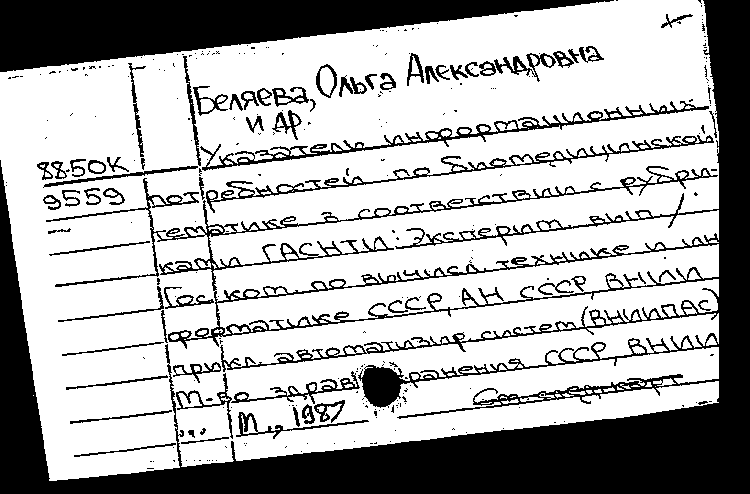 Беляева, Ольга Александровна
и др.
88-50К
Указатель информационных
9559
потребностей по биомедицинской
тематике в соответствии с рубри-
ками ГАСНТИ: Эксперим. вып /.
Гос ком. по вычисл. технике и ин
форматике СССР, АН СССР, ВНИИ
прикл. автоматизир. систем (ВНИИПАС)
М-во здравоохранения СССР, ВНИИ
... М., 1987
См след карт